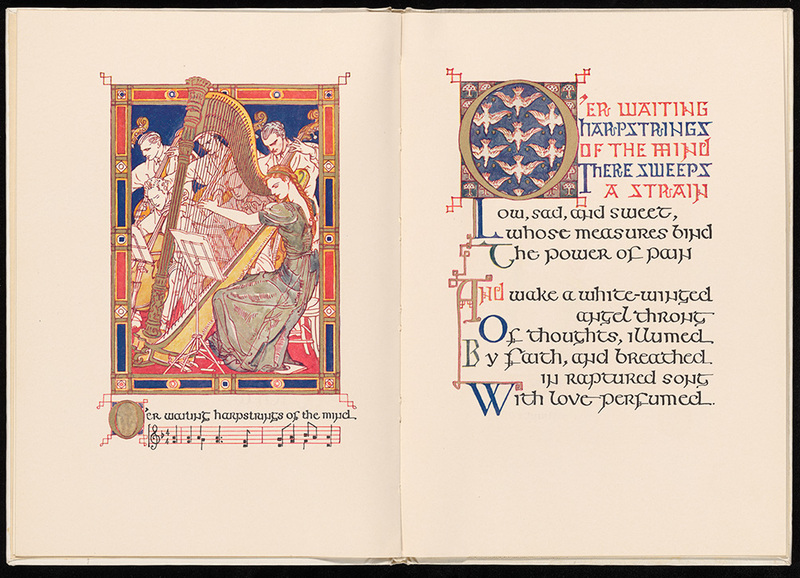 O'er waiting harpstrings of the mind
O'ER WAITING
HARPSTRINGS
OF THE MIND
THERE SWEEPS
A STRAIN
Low, sad, and sweet,
whose measures bind
The power of pain
And wake a white-winged
angel throng
Of thoughts, illumed
By faith, and breathed
in raptured song
With love perfumed.